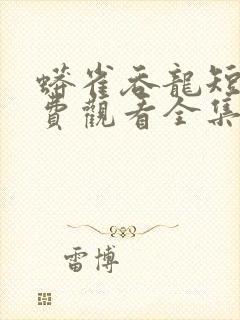 蟒雀吞龍短
費觀看全集
雷博